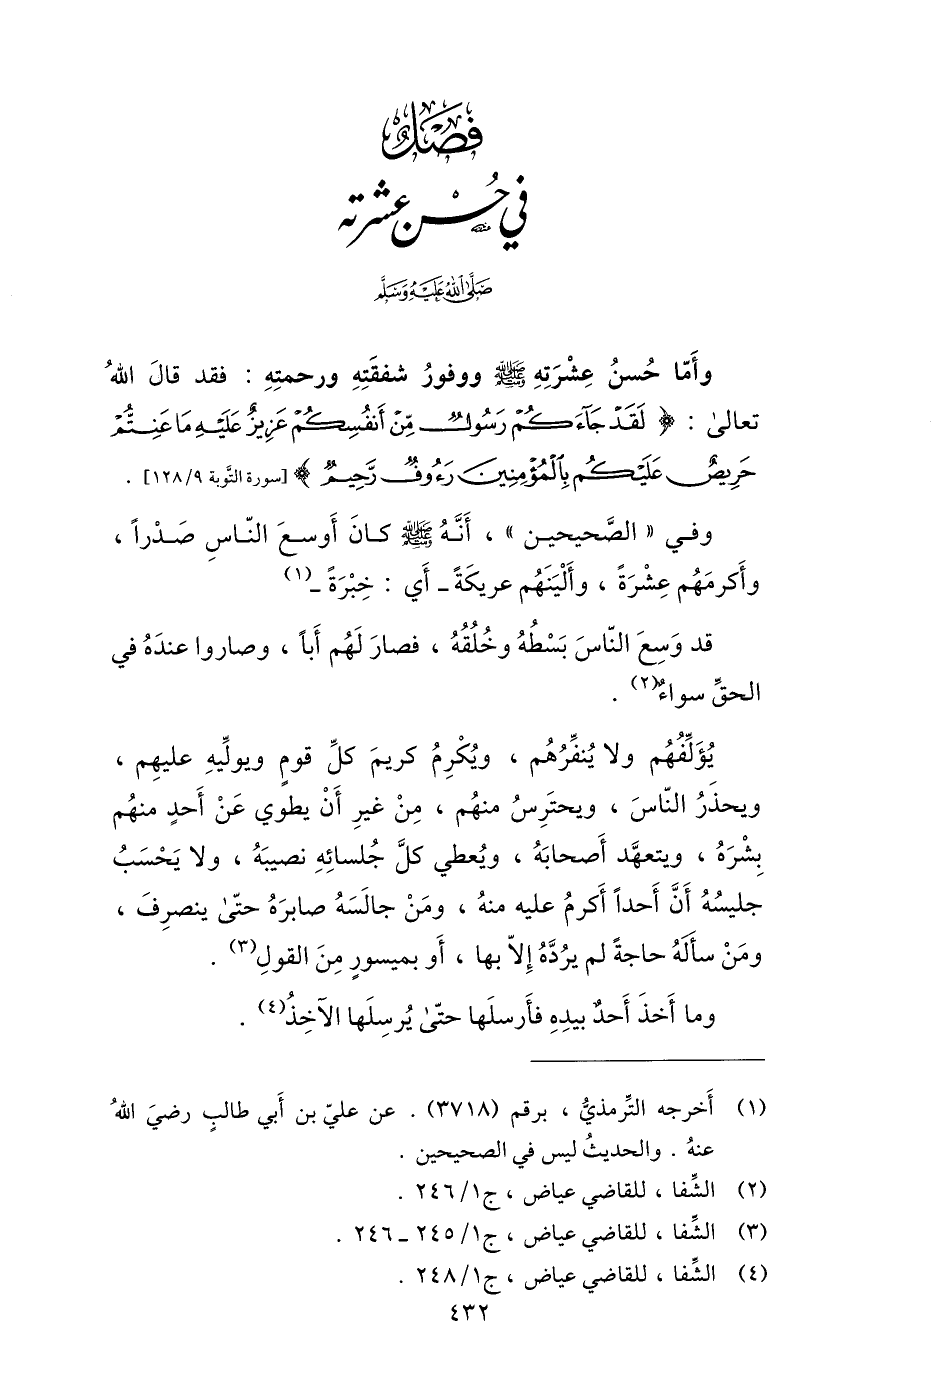 فَصْلٌ
في حُسْنِ عشرته
صَلَّى اللهُ عَلَيْهِ وَسَلَّم
وأَمّا حُسنُ عِشْرَتِهِ ﷺ ووفورُ شفقَتِهِ ورحمتِهِ : فقد قالَ اللهُ
تعالىٰ : ﴿ لَقَدْ جَآءَكُمْ رَسُولٌ مِّنْ أَنفُسِكُمْ عَزِيزٌ عَلَيْهِ مَا عَنِتُّمْ
حَرِيصٌ عَلَيْكُم بِالْمُؤْمِنِينَ رَءُوفٌ رَّحِيمٌ ﴾ [سورة التَّوبة ١٢٨/٩] .
وفي « الصَّحيحين » ، أَنَّهُ ﷺ كانَ أَوسعَ النّاسِ صَدْراً ،
وأَكرمَهُم عِشْرَةً ، وأَلْيَنَهُم عريكَةً ـ أَي : خِبْرَةً ـ(١)
قد وَسِعَ النّاسَ بَسْطُهُ وخُلُقُهُ ، فصارَ لَهُم أَباً ، وصاروا عندَهُ في
الحقِّ سواءً(٢) .
يُؤَلِّفُهُم ولا يُنفِّرُهُم ، ويُكْرِمُ كريمَ كلِّ قومٍ ويولِّيهِ عليهِم ،
ويحذَرُ النّاسَ ، ويحترِسُ منهُم ، مِنْ غيرِ أَنْ يطوي عَنْ أَحدٍ منهُم
بِشْرَهُ ، ويتعهَّد أَصحابَهُ ، ويُعطي كلَّ جُلسائِهِ نصيبَهُ ، ولا يَحْسَبُ
جليسُهُ أَنَّ أَحداً أَكرمُ عليه منهُ ، ومَنْ جالَسَهُ صابرَهُ حتّىٰ ينصرِفَ ،
ومَنْ سأَلَهُ حاجةً لم يرُدَّهُ إِلاّ بها ، أَو بميسورٍ مِنَ القولِ(٣) .
وما أَخذَ أَحدٌ بيدِهِ فأَرسلَها حتّىٰ يُرسِلَها الآخِذُ(٤) .
(١) أَخرجه التِّرمذيُّ ، برقم (٣٧١٨) . عن عليّ بن أَبي طالبٍ رضيَ اللهُ
عنهُ . والحديثُ ليس في الصحيحين .
(٢) الشِّفا ، للقاضي عياض ، ج١/ ٢٤٦ .
(٣) الشِّفا ، للقاضي عياض ، ج١/ ٢٤٥ ـ ٢٤٦ .
(٤) الشِّفا ، للقاضي عياض ، ج١/ ٢٤٨ .
٤٣٢